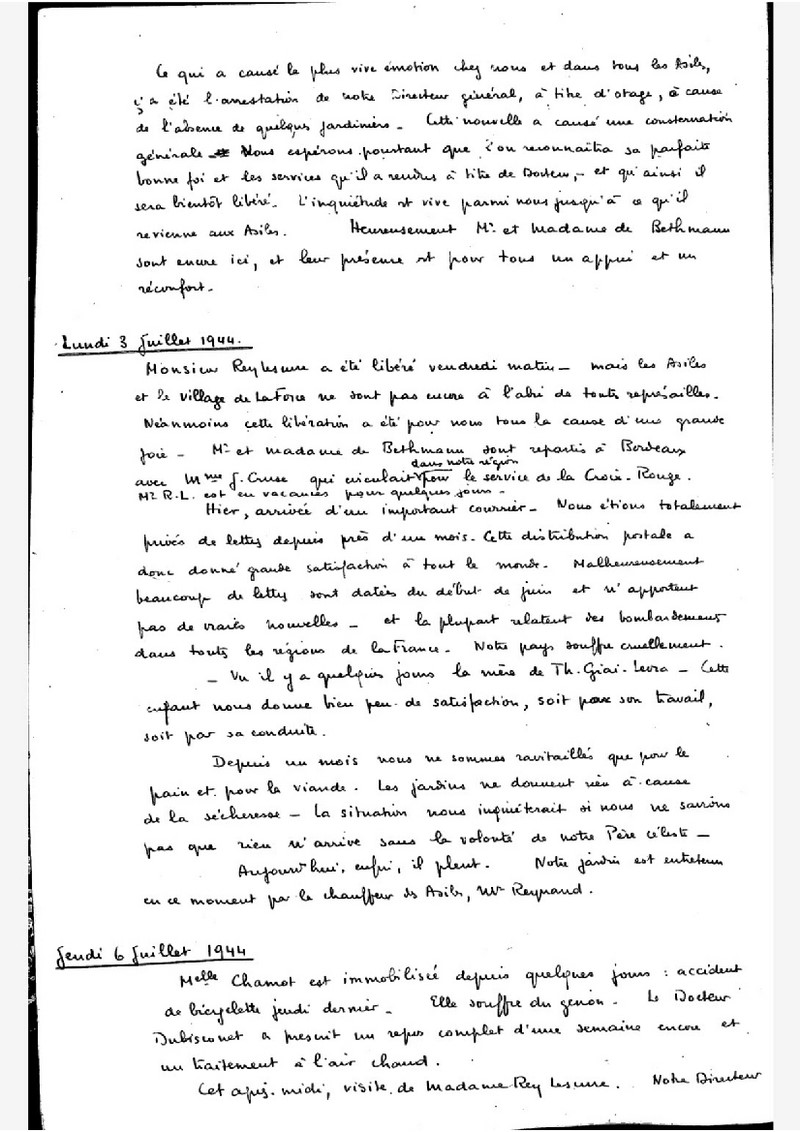 Ce qui a causé la plus vive émotion chez nous et dans tous les Asiles,
ç'a été l'arrestation de notre Directeur général, à titre d'otage, à cause
de l'absence de quelques jardiniers - Cette nouvelle a causé une consternation
générale - Nous espérons pourtant que l'on reconnaîtra sa parfaite
bonne foi et les services qu'il a rendus à titre de Docteur, - et qu'ainsi il
sera bientôt libéré. L'inquiétude est vive parmi nous jusqu'à ce qu'il
revienne aux Asiles. Heureusement Mr et Madame de Bethmann
sont encore ici, et leur présence est pour tous un appui et un
réconfort -
Lundi 3 Juillet 1944.
Monsieur Rey Lescure a été libéré vendredi matin - mais les Asiles
et le village de Laforce ne sont pas encore à l'abri de toutes représailles -
Néanmoins cette libération a été pour nous tous la cause d'une grande
joie - Mr et Madame de Bethmann sont repartis à Bordeaux
dans notre région
avec Mme J. Cruse qui circulait pour le service de la Croix-Rouge.
Mr R.L. est en vacances pour quelques jours -
Hier, arrivée d'un important courrier - Nous étions totalement
privés de lettres depuis près d'un mois - Cette distribution postale a
donc donné grande satisfaction à tout le monde. Malheureusement
beaucoup de lettres sont datées du début de juin et n'apportent
pas de vraies nouvelles - et la plupart relatent des bombardements
dans toutes les régions de la France - Notre pays souffre cruellement.
- Vu il y a quelques jours la mère de Th. Giai-Levra - Cette
enfant nous donne bien peu de satisfaction, soit par son travail,
soit par sa conduite.
Depuis un mois nous ne sommes ravitaillés que pour le
pain et pour la viande. Les jardins ne donnent rien à cause
de la sécheresse - La situation nous inquiéterait si nous ne savions
pas que rien n'arrive sans la volonté de notre Père céleste -
Aujourd'hui, enfin, il pleut. Notre jardin est entretenu
en ce moment par le chauffeur des Asiles, Mr Reynaud.
Jeudi 6 Juillet 1944
Melle Chamot est immobilisée depuis quelques jours : accident
de bicyclette jeudi dernier - Elle souffre du genou - Le Docteur
a prescrit un repos complet d'une semaine encore et
un traitement à l'air chaud.
Cet après-midi, visite de Madame Rey Lescure. Notre Directeur